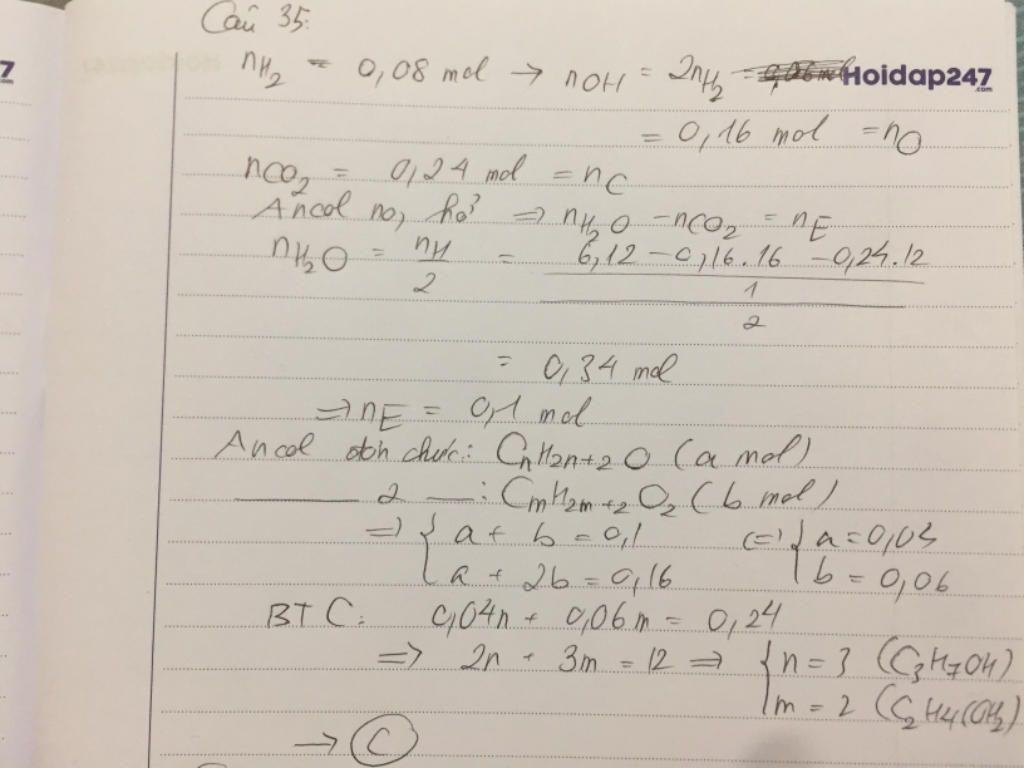 Câu 35:
7
nH2 = 0,08 mol → nOH = 2nH2 = Hoidap247.com
= 0,16 mol = nO
nCO2 = 0,24 mol = nC
Ancol no, hở ⇒ nH2O - nCO2 = nE
nH2O = nH/2 = (6,12 - 0,16.16 - 0,24.12)/1/2
= 0,34 mol
⇒ nE = 0,1 mol
Ancol đơn chức: CnH2n+2O (a mol)
——— 2 —: CmH2m+2O2 (b mol)
⇒ { a + b = 0,1 (=) { a = 0,03
a + 2b = 0,16 b = 0,06
BTC: 0,04n + 0,06m = 0,24
⇒ 2n + 3m = 12 ⇒ { n = 3 (C3H7OH)
m = 2 (C2H4(OH2)
→ C